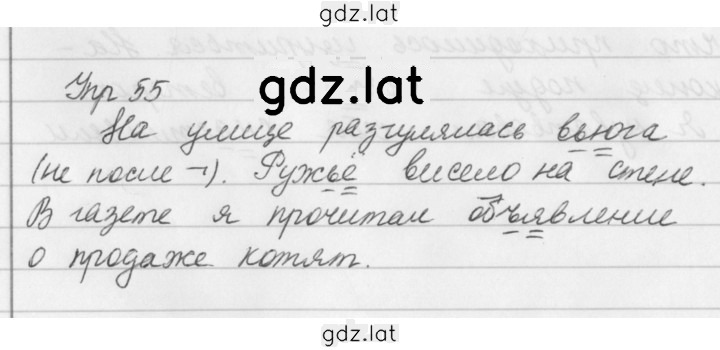 gdz.lat
Упр 55
gdz.lat
На улице разгулялась вьюга
(не после ¬). Ружьё висело на стене.
В газете я прочитал объявление
о продаже котят.
gdz.lat